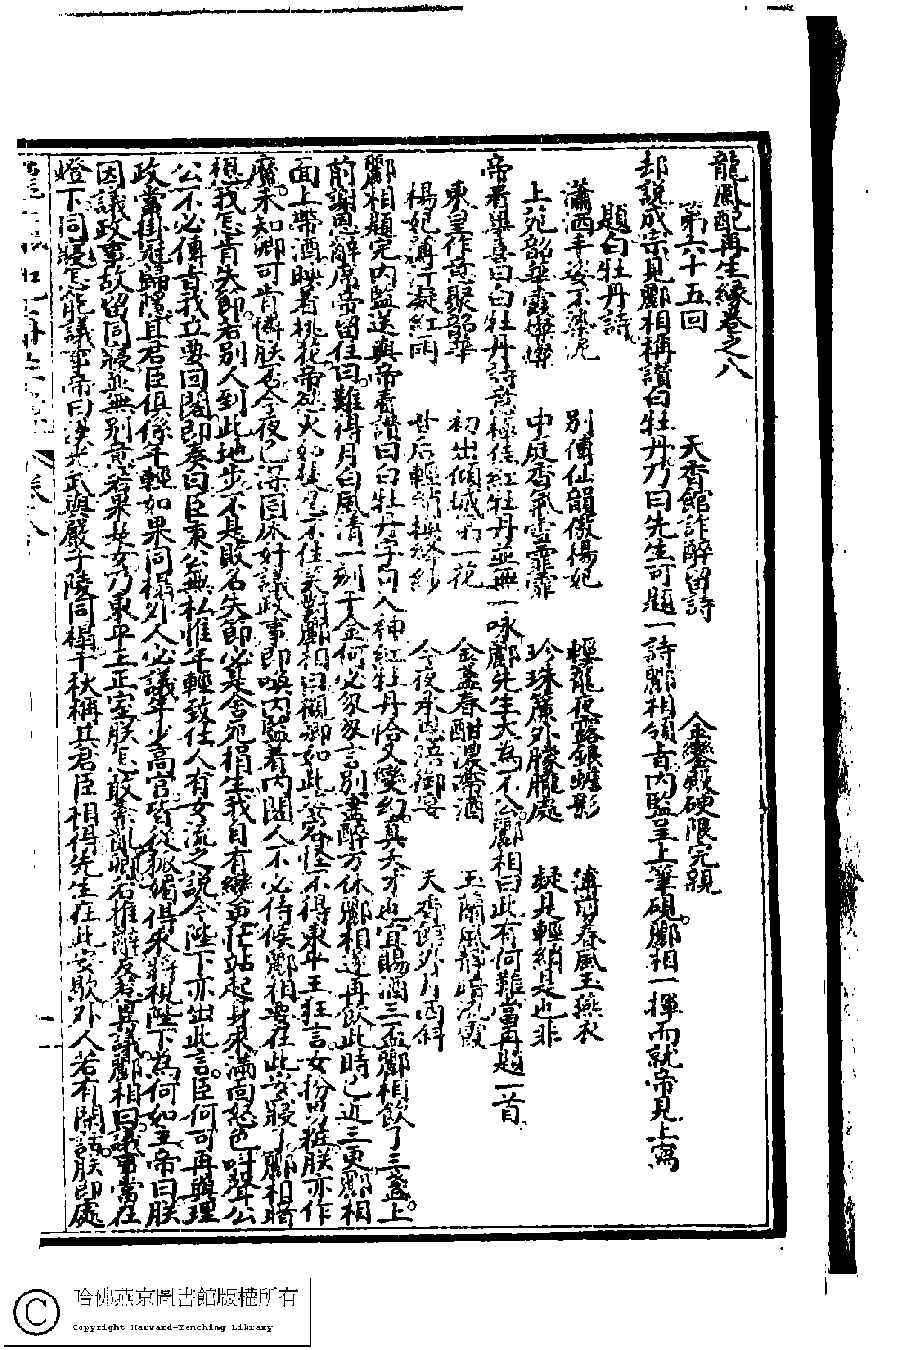 龍鳳配再生緣卷之八
第六十五回　天香館詐醉留詩　金鑾殿硬限完親
却說成宗見酈相稱讚白牡丹乃曰先生可題一詩酈相領旨內監呈上筆硯酈相一揮而就帝見上寫
題白牡丹詩
瀟洒丰姿不染塵　別傳仙韻傲楊妃　輕籠夜露銀蟾影　溥向春風玉燕衣
上苑韶華霞燦燦　中庭香氣雪霏霏　珍珠簾外朦朧處　疑是輕綃是也非
帝看畢喜曰白牡丹詩意極佳紅牡丹並無一咏酈先生大為不公酈相曰此有何難當再題一首
東皇作意聚韶華　初出傾城第一花　金盞春酣濃帶酒　玉闌風靜暗流霞
楊妃講罷凝紅雨　甘后輕籠換絳紗　今夜承恩陪御宴　天香館外月西斜
酈相題完內監送與帝看讚曰白牡丹字句入神紅牡丹恰又變約真天才也宜賜酒三盃酈相飲了三盞上
前謝恩辭席帝留住曰難得月白風清一刻千金何必匆匆言別盡醉方休酈相遂再飲此時已近三更酈相
面上帶酒映着桃花帝慾火如焚忍不住笑對酈相曰觀卿如此姿容怪不得東平王狂言女扮男粧朕亦作
魔來知卿可肯憐朕否今夜已深同床好議政事即喚內監着內閣人不必侍候酈相要在此安寢了酈相暗
想我怎肯失節若別人到此地步不是敗名失節必是舍死捐生我自有變更忙站起身來滿面怒色叫聲公
公不必傳旨我立要回閣即奏曰臣秉公無私惟年輕致住人有女流之說今陛下亦出此言臣何可再與理
政當掛冠歸隱且君臣俱係年輕如果同榻外人必議年少高官皆從狐媚得來將視陛下為何如主帝曰朕
因議政事故留同寢並無別意若果是女乃東平王正室朕怎敢紊亂卿若推辭反惹異議酈相曰議事當在
燈下同寢怎能議事帝曰漢光武與嚴子陵同榻千秋稱其君臣相得先生在此安歇外人若有閒話朕即處
哈佛燕京圖書館版權所有
Copyright Harvard-Yenching Library